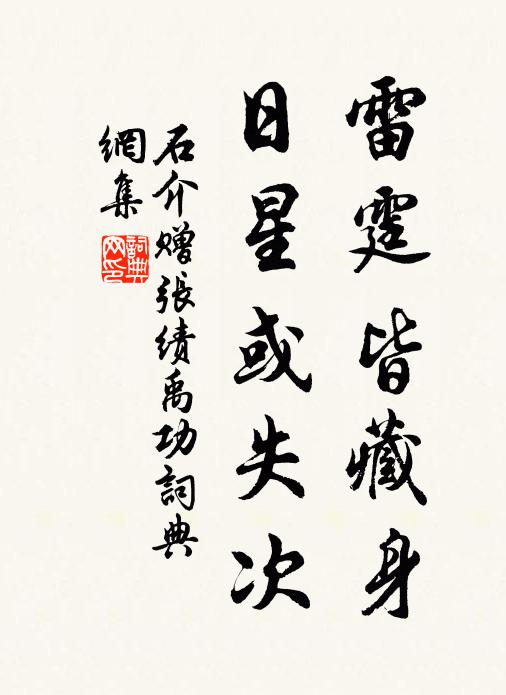 雷霆皆藏身
日星或失次
石介赠張績禹功詞典
網集
詞典
网印